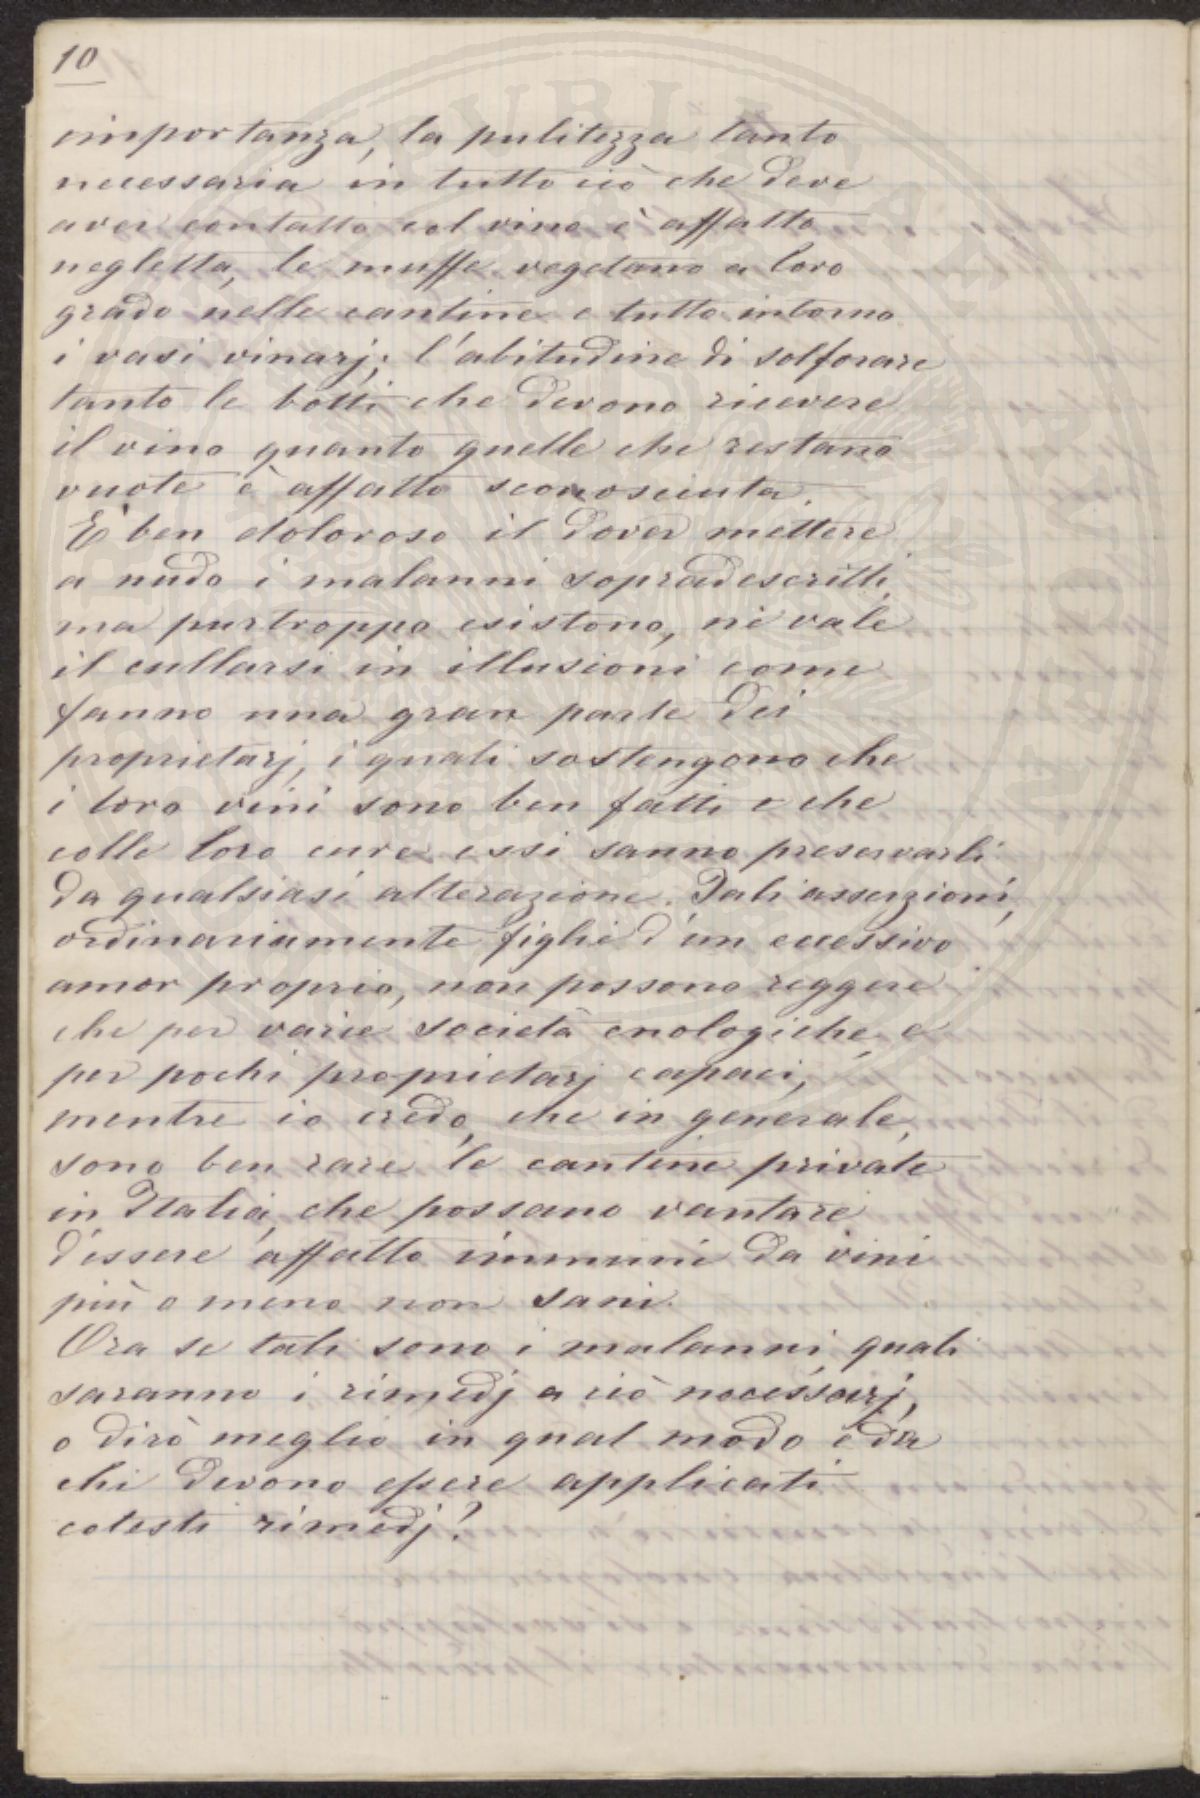 10
importanza, la pulitezza tanto
necessaria in tutto ciò che deve
aver contatto col vino è affatto
negletta, le muffe vegetano a loro
grado nelle cantine e tutto intorno
i vasi vinarj; l'abitudine di solforare
tanto le botti che devono ricevere
il vino quanto quelle che restano
vuote è affatto sconosciuta.
È ben doloroso il dover mettere
a nudo i malanni sopradescritti,
ma purtroppo esistono, nè vale
il cullarsi in illusioni come
fanno una gran parte dei
proprietarj, i quali sostengono che
i loro vini sono ben fatti e che
colle loro cure essi sanno preservarli
da qualsiasi alterazione. Tali asserzioni,
ordinariamente figlie d'un eccessivo
amor proprio, non possono reggere
che per varie società enologiche, e
per pochi proprietarj capaci,
mentre io credo, che in generale,
sono ben rare le cantine private
in Italia, che possano vantare
d'essere affatto immuni da vini
più o meno non sani.
Ora se tali sono i malanni, quali
saranno i rimedj a ciò necessarj,
o dirò meglio in qual modo e da
chi devono essere applicati
cotesti rimedj?